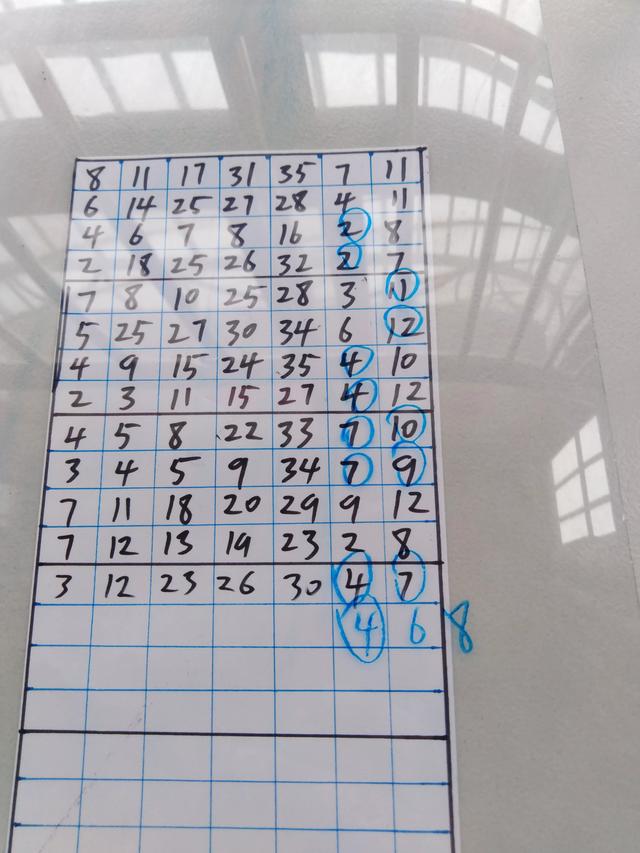 8 11 17 31 35 7 11
6 14 25 27 28 4 11
4 6 7 8 16 2 8
2 18 25 26 32 2 7
7 8 10 25 28 3 11
5 25 27 30 34 6 12
4 9 15 24 35 4 10
2 3 11 15 27 4 12
4 5 8 22 33 7 10
3 4 5 9 34 7 9
7 11 18 20 29 9 12
7 12 13 19 23 2 8
3 12 23 26 30 4 7
4 6 8